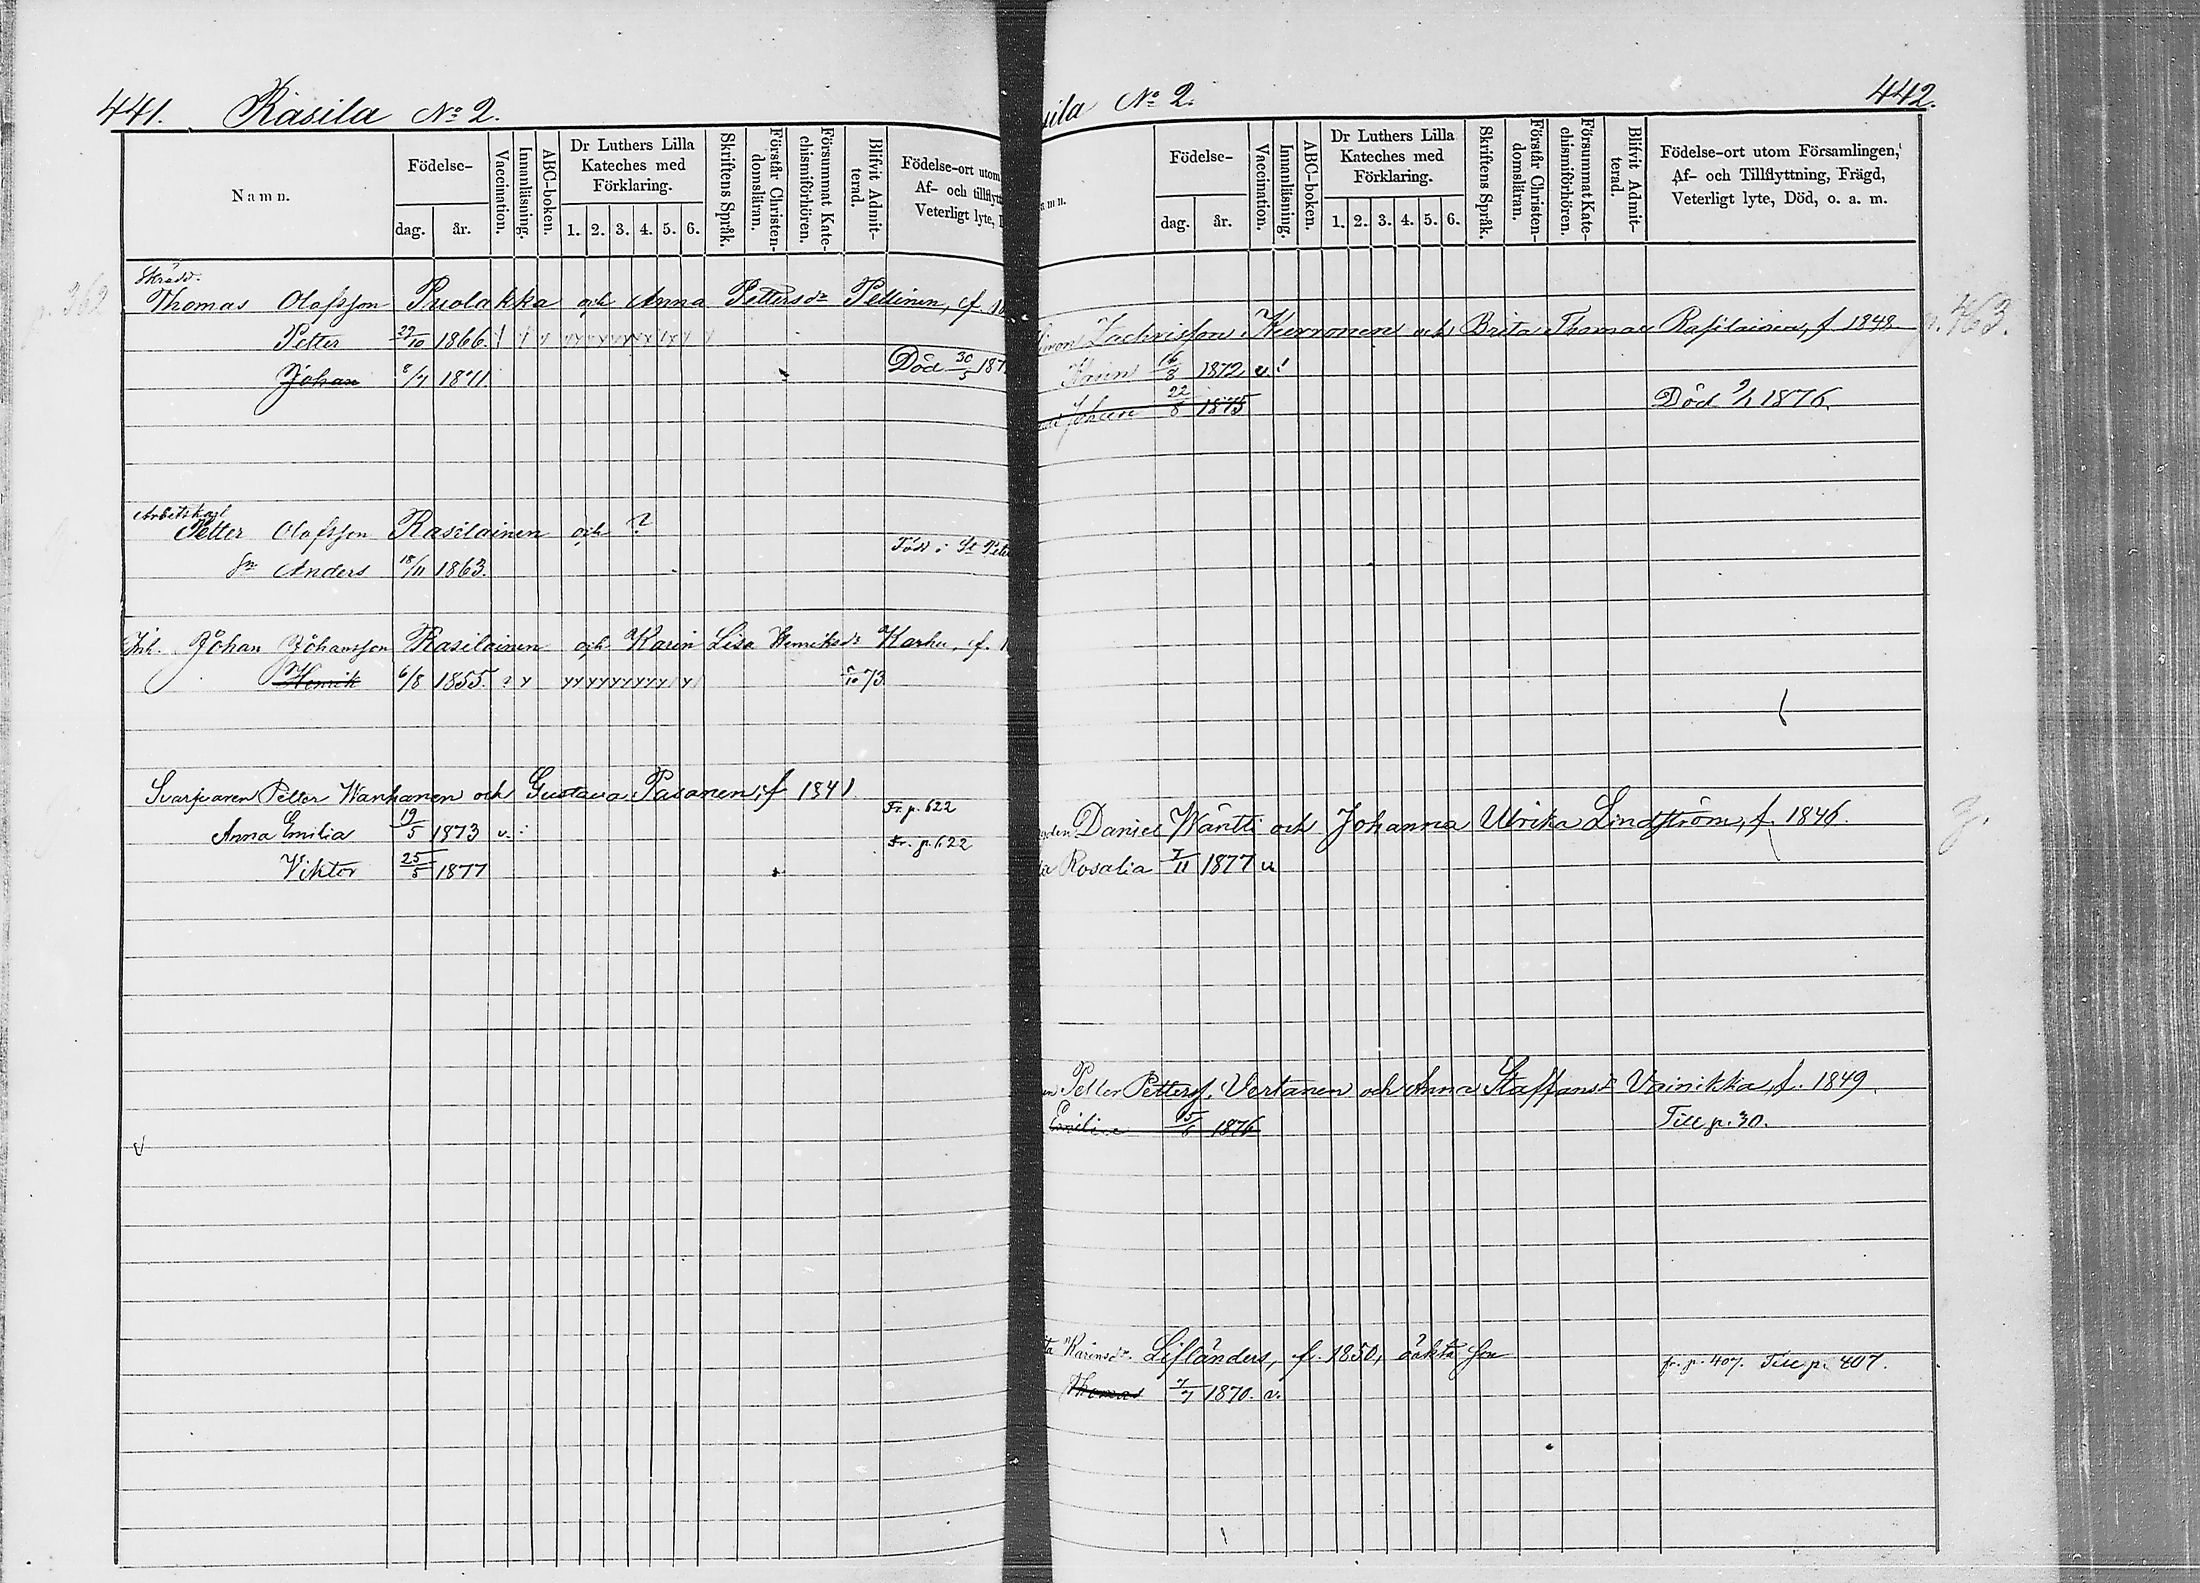 441. Rasila No 2.
Namn.
Födelse-
dag. år.
Vaccination.
Innanläsning.
ABC-boken.
Dr Luthers Lilla
Kateches med
Förklaring.
1. 2. 3. 4. 5. 6.
Skriftens Språk.
Förstår Christen-
domsläran.
Försummat Kate-
chismiförhören.
Blifvit Admit-
terad.
Födelse-ort utom
Af- och tillflytt
Veterligt lyte,
p. 362
Skrädd.
Thomas Olofsson Puolakka och Anna Pettersdr Pellinen, f.
Petter 29/10 1866.
Johan 8/7 1871 Död 30/5 187
Arbetskarl
Petter Olofsson Rasilainen och ?
Född i St Peter
sn Anders 18/11 1863.
Inh. Johan Johansson Rasilainen och Karin Lisa Henriksdr Karhu, f.
Henrik 6/8 1855. 73
Svarfvaren Petter Wanhanen och Gustava Pasanen, f 1841
Fr. p. 622
Anna Emilia 19/5 1873 v.
Fr. p. 622
Viktor 25/5 1877
sila No 2. 442.
amn.
Födelse-
dag. år.
Vaccination.
Innanläsning.
ABC-boken.
Dr Luthers Lilla
Kateches med
Förklaring.
1. 2. 3. 4. 5. 6.
Skriftens Språk.
Förstår Christen-
domsläran.
Försummat Kate-
chismiförhören.
Blifvit Admit-
terad.
Födelse-ort utom Församlingen,
Af- och Tillflyttning, Frägd,
Veterligt lyte, Död, o. a. m.
imon Zachrisson Kurronen och Brita Thomasdr Rasilainen, f 1848. p. 463.
Karin 16/8 1872 v
Johan 22/8 1875 Död 9/1 1876.
Daniel Wäntti och Johanna Ulrika Lindström, f. 1846.
Rosalia 7/11 1877 v
Petter Petterss. Vertanen och Anna Staffansdr Vainikka, f. 1849.
Emilia 15/6 1876 Till p. 30.
ita Karinsdr. Lifländers, f. 1850, oäkta son fr. p. 407. Till p. 407.
Thomas 7/7 1870. v.